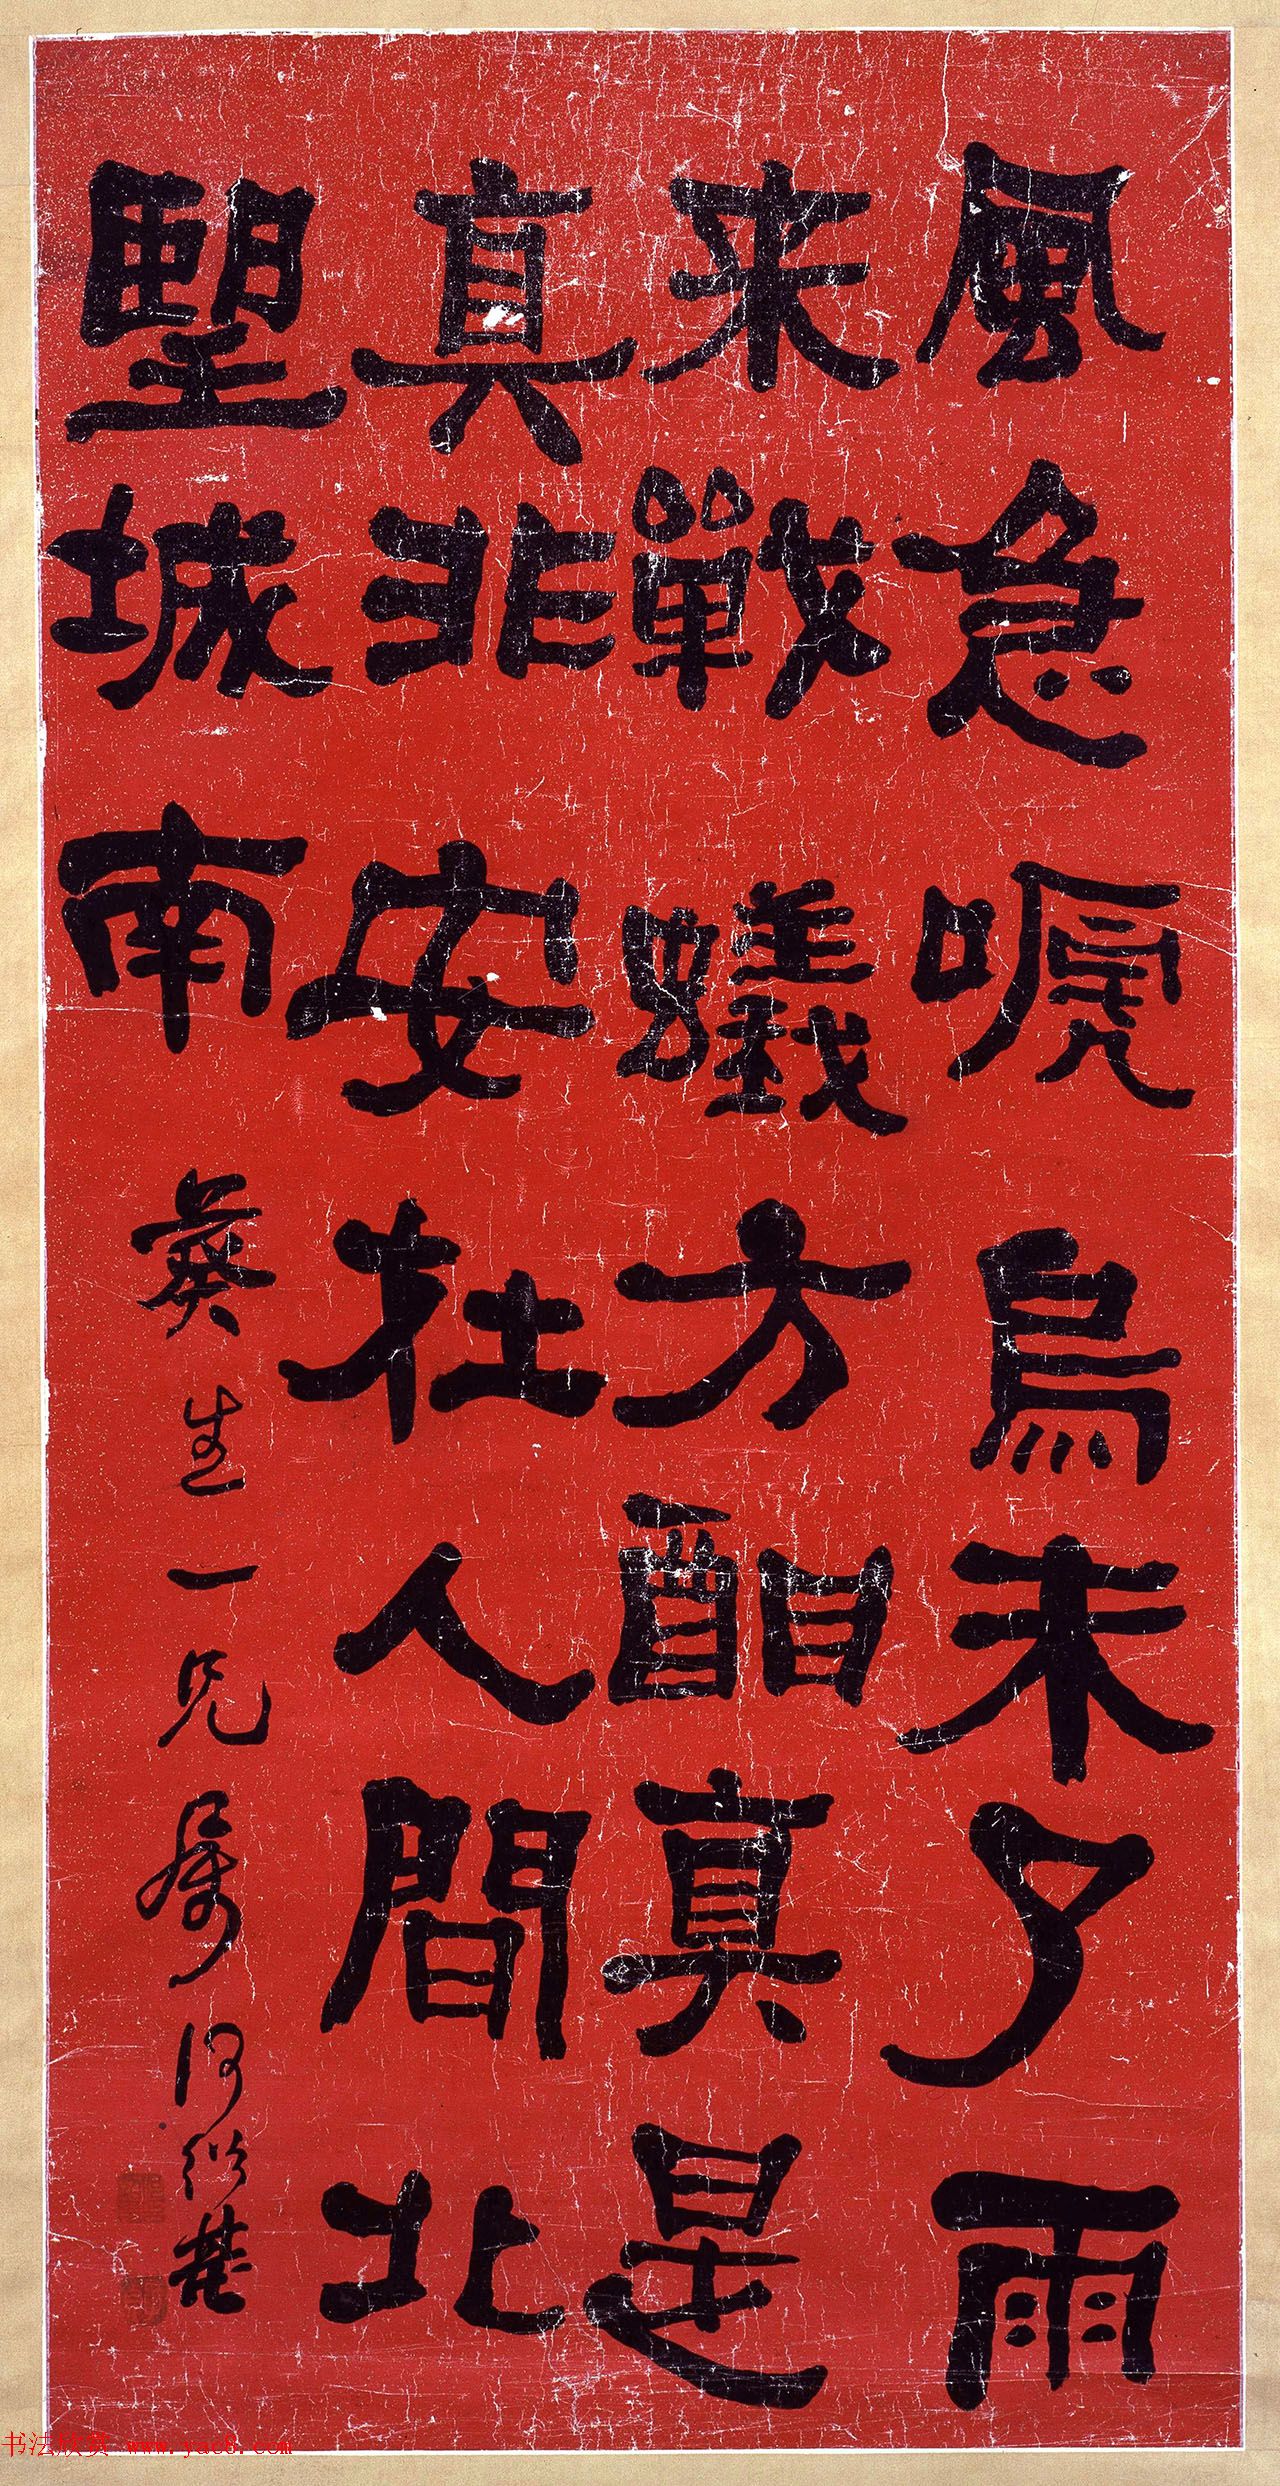 風急嗁烏未了雨
来戰蟻方酣真是
真非安在人間北
朢城南
彝生一兄屬何紹基
书法欣赏 www.yac8.com